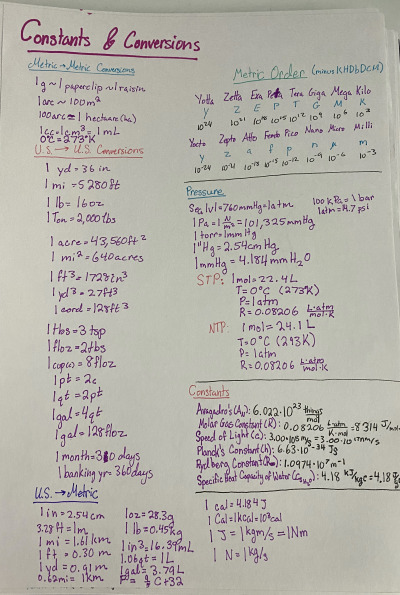 Constants & Conversions
Metric→Metric Conversions
1g ~ 1 paperclip ~ 1 raisin
1 arc ~ 100m²
100 arc = 1 hectare (ha)
1cc = 1cm³ = 1 mL
0°C = 273°K
U.S.→U.S. Conversions
1 yd = 36 in
1 mi = 5280ft
1 lb = 16oz
1 Ton = 2,000lbs
1 acre = 43,560ft²
1 mi² = 640acres
1 ft³ = 1728in³
1 yd³ = 27ft³
1 cord = 128ft³
1 tbs = 3 tsp
1 floz = 2tbs
1 cup(c) = 8floz
1 pt = 2c
1 qt = 2pt
1 gal = 4qt
1 gal = 128floz
1 month = 30 days
1 banking yr = 360days
U.S.→Metric
1 in = 2.54cm
3.28ft = 1m
1 mi = 1.61km
1 ft = 0.30 m
1 yd = 0.91m
0.62mi = 1km
1oz = 28.3g
1 lb = 0.45kg
1 in³ = 16.39mL
1.06qt = 1L
1gal = 3.79L
F° = 9/5 C + 32
Metric Order (minus KHDbDCM)
Yotta Zetta Exa Peta Tera Giga Mega Kilo
Y Z E P T G M K
10-24 10²¹ 10¹⁸ 10¹⁵ 10¹² 10⁹ 10⁶ 10³
Yocto Zepto Atto Femto Pico Nano Micro Milli
y z a f p n μ m
10-24 10-21 10-18 10-15 10-12 10-9 10-6 10-3
Pressure
Sea lvl = 760mmHg = 1atm
100 KPa = 1 bar
1atm = 14.7 psi
1 Pa = 1 N/m² = 101,325mmHg
1 torr = 1mm Hg
1"Hg = 2.54cm Hg
1mmHg = 4.184 mm H₂O
STP: 1 mol = 22.4L
T = 0°C (273K)
P = 1atm
R = 0.08206 L·atm/mol·K
NTP: 1 mol = 24.1 L
T = 0°C (293K)
P = 1 atm
R = 0.08206 L·atm/mol·K
Constants
Avagadro's (Aₙ): 6.022·10²³ things/mol
Molar Gas Constant (R): 0.08206 L·atm/K·mol = 8.314 J/mol
Speed of Light (c): 3.00·10⁸ m/s = 3.00·10¹⁷ nm/s
Planck's Constant (h): 6.63·10-³⁴ Js
Rydberg Constant (R∞): 1.0974·10⁷ m-1
Specific Heat Capacity of Water (C H₂O): 4.18 kJ/kg°C = 4.18 J/g
1 cal = 4.184J
1 Cal = 1kcal = 10³cal
1 J = 1 kgm/s = 1Nm
1 N = 1kg/s